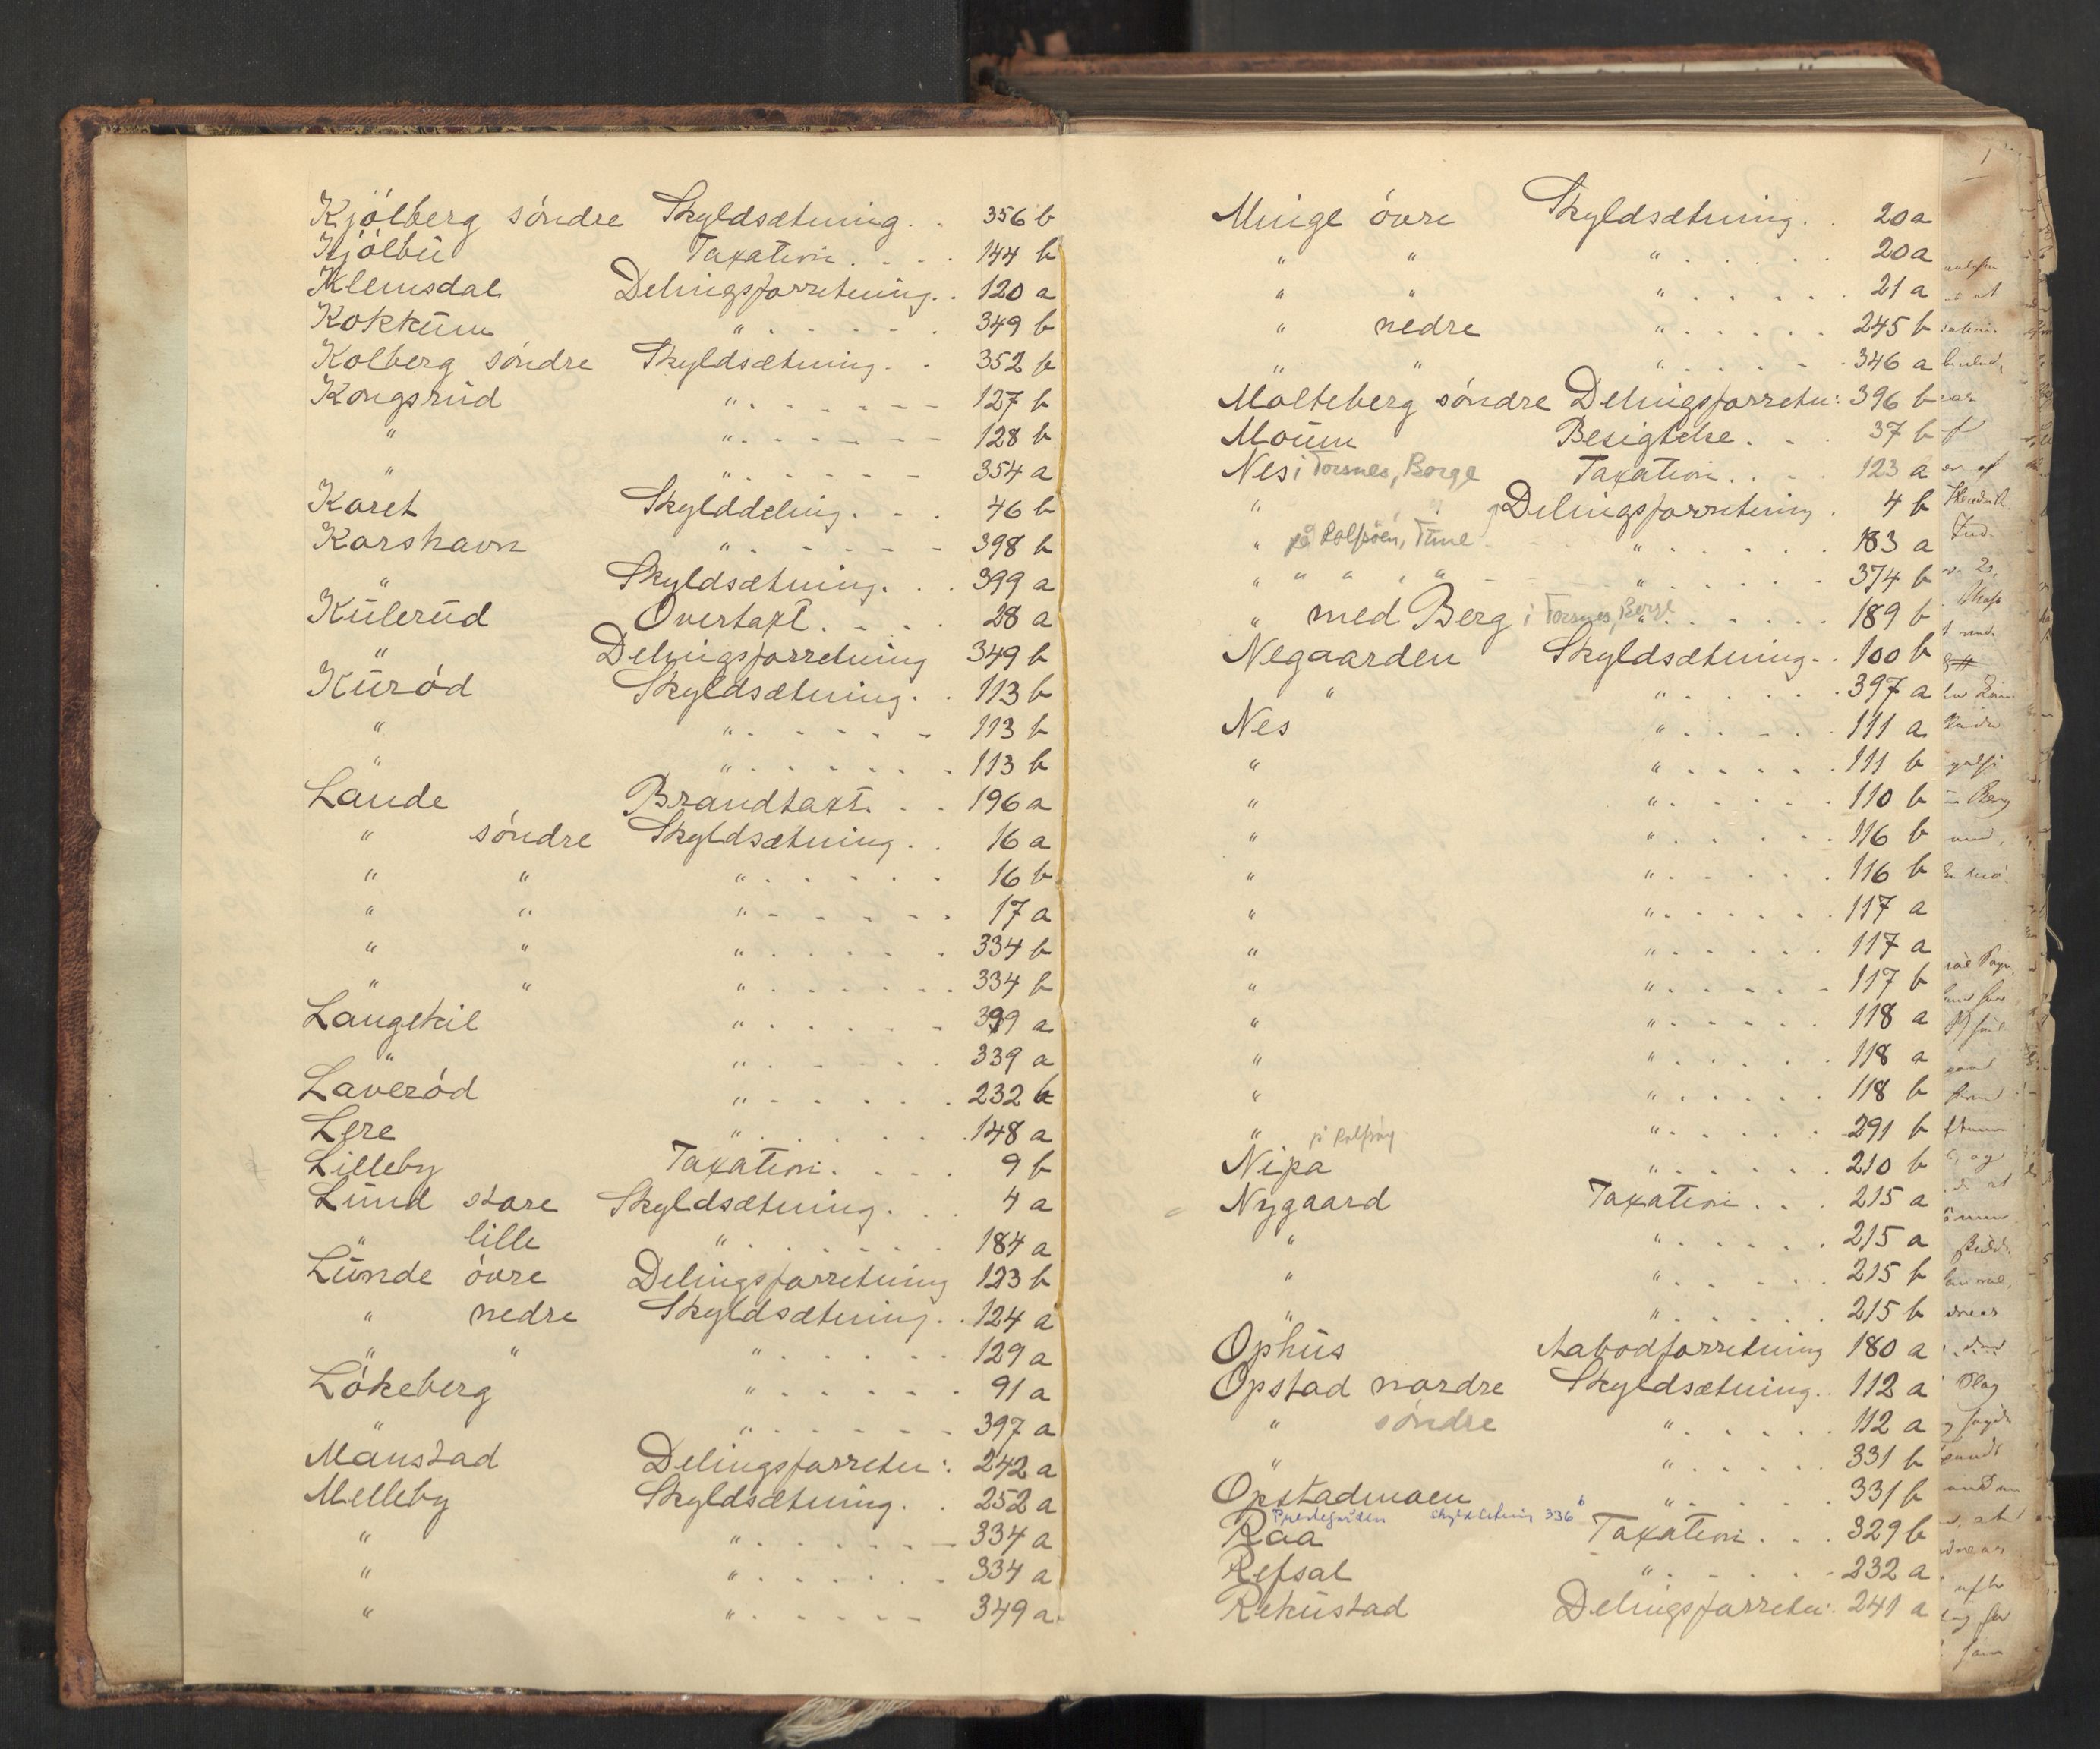 Kjólberg sóndre Skyldsætning. . 356 b
Kjólbü Taxation. . . . 144 b
Klemsdal Delingsforretning. . 120 a
Kokküm " . . . . . . 349 b
Kolberg sóndre Skyldsætning. . 352 b
Kongsrüd " . . . . . . 127 b
" " . . . . . . 128 b
" " . . . . . . 354 a
Koret Skylddeling. . . 46 b
Korshavn " . . . . . . 398 b
" Skyldsætning. . . 399 a
Külerüd Overtaxt. . . . 28 a
" Delingsforretning 349 b
Küród Skyldsætning. . 113 b
" " . . . . . . 113 b
" " . . . . . . 113 b
Lande Brandtaxt. . . 196 a
" sóndre Skyldsætning. . 16 a
" " " . . . . . . 16 b
" " " . . . . . . 17 a
" " " . . . . . . 334 b
" " " . . . . . . 334 b
Langekil " . . . . . . 399 a
" " . . . . . . 339 a
Laveród " . . . . . . 232
Lere " . . . . . . 148 a
Lilleby Taxation. . . . 9 b
Lünd store Skyldsætning. . . 4 a
" lille " . . . . . . 184 a
Lünde óvre Delingsforretning 123 b
" nedre Skyldsætning. . 124 a
" " " . . . . . . 129 a
Lókeberg " . . . . . . 91 a
" " . . . . . . 397 a
Manstad Delingsforretn: 242 a
Melleby Skyldsætning. . 252 a
" " . . . . . . 334 a
" " . . . . . . 334 a
" " . . . . . . 349 a
Minge óvre Skyldsætning. . 20 a
" " " . . . . . . 20 a
" " " . . . . . . 21 a
" nedre " . . . . . . 245 b
" " " . . . . . . 346 a
Molteberg sóndre Delingsforretn: 396 b
Moüm Besigtelse. . . 37 b
Nes i Torsnes, Borge Taxation. . . 123 a
" Delingsforretning. 4 b
" på Rolfsöen, Tune " . . . . . . 183 a
" " " " " " . . . . . . 374 b
" med Berg i Torsnes, Borge " . . . . . . 189 b
Negaarden Skyldsætning. . 100 b
" " . . . . . . 397 a
Nes " . . . . . . 111 a
" " . . . . . . 111 b
" " . . . . . . 110 b
" " . . . . . . 116 b
" " . . . . . . 116 b
" " . . . . . . 117 a
" " . . . . . . 117 a
" " . . . . . . 117 b
" " . . . . . . 118 a
" " . . . . . . 118 a
" " . . . . . . 118 b
" på Rolfsöy " . . . . . . 291 b
Nipa " . . . . . . 210 b
Nygaard Taxation. . . 215 a
" " . . . . . . 215 a
" " . . . . . . 215 b
" " . . . . . . 215 b
Ophüs Aabodforretning 180 a
Opstad nordre Skyldsætning. . 112 a
" sóndre " . . . . . . 112 a
" " . . . . . . 331 b
Opstadmoen " . . . . . . 331 b
Prestegården Skyldsetning 336 b
Raa Taxation. . . 329 b
Refsal " . . . . . . 232 a
Reküstad Delingsforretn: 241 a